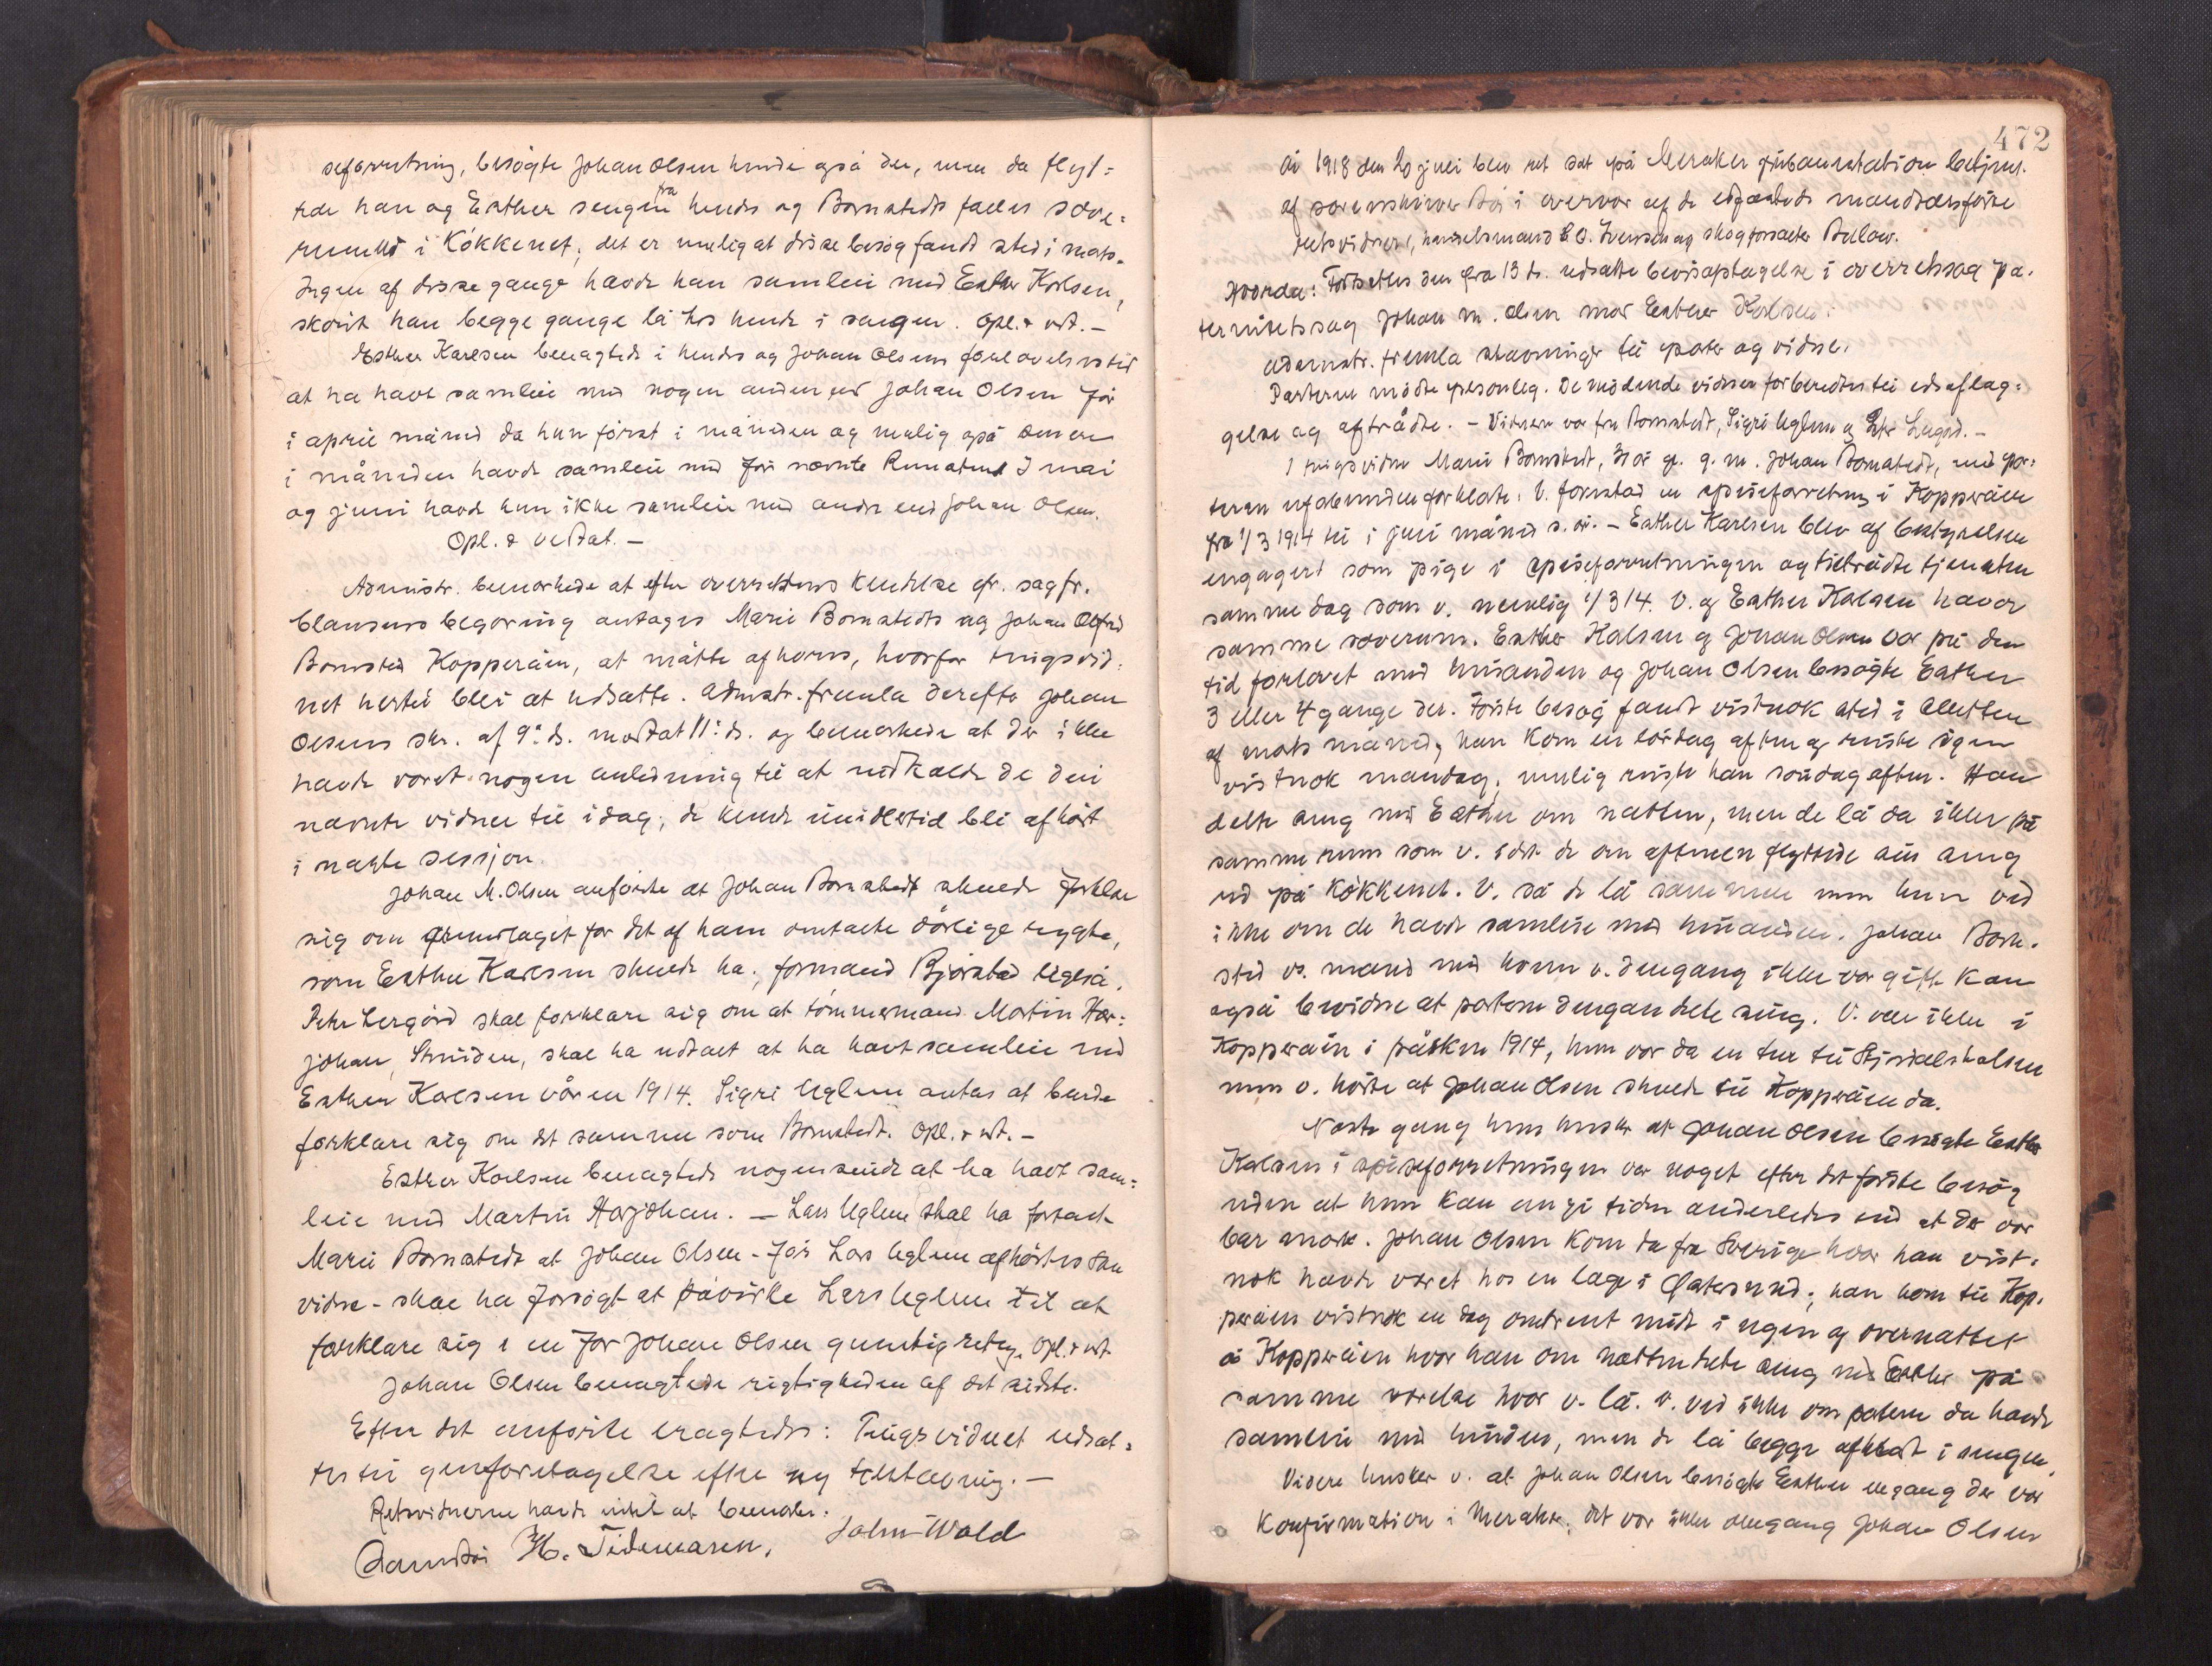 seforretning, besøgte Johan Olsen hende også der, men da flyt-
tede han og Esther sengen fra hendes og Bornstedts fælles sove-
rummet i Kökkenet; det er mulig at disse besøg fandt sted i mars.
Ingen af disse gange havde han samleie med Esther Karlsen,
skönt han begge gange lå hos hende i sengen. Opl. & vedt. –
Esther Karlsen benægtede i hendes og Johan Olsens forlovelsestid
at ha havt samleie med nogen anden end Johan Olsen før
i april måned da hun først i måneden og mulig også senere
i måneden havde samleie med før nævnte Renatus. I mai
og juni havde hun ikke samleie med andre end Johan Olsen.
Opl. & vedtat. –
Administr. bemærkede at efter overrettens kjendelse efr. sagfr.
Clausens begæring antages Marie Bornstedts og Johan Alfred
Bornsted Kopperåen, at måtte afhøres, hvorfor tingsvid-
net hertil blir at udsætte. Admstr. fremla derefter Johan
Olsens skr. af 9. ds. modtat 11. ds. og bemærkede at der ikke
havde været nogen anledning til at indkalde de deri
nævnte vidner til idag; de kunde imidlertid bli afhørt
i næste session.
Johan M. Olsen anførte at Johan Bornstedt skulde forklare
sig om grundlaget for det af ham omtalte dårlige rygte,
som Esther Karlsen skulde ha; formand Bjørstad ligeså.
Peter Lergård skal forklare sig om at tömmermand Martin Har-
johan, Struiden, skal ha udtalt at ha havt samleie med
Esther Karlsen våren 1914. Sigri Uglem antas at burde
forklare sig om det samme som Bornstedt. Opl. & vt. –
Esther Karlsen benægtede nogensinde at ha havt sam-
leie med Martin Harjohan. – Lars Uglem skal ha fortalt
Marie Bornstedt at Johan Olsen – før Lars Uglem afhørtes som
vidne – skal ha forsøgt at påvirke Lars Uglem til at
forklare sig i en for Johan Olsen gunstig retn. Opl. & vt.
Johan Olsen benægtede rigtigheden af det sidste.
Efter det anførte eragtedes: Tingsvidnet udsæt-
tes til genforetagelse efter ny tilstævning. –
Retsvidnerne havde intet at bemærke.
H. Tidemansen. John Wold
472
År 1918 den 20 juli blev ret sat på Meraker jernbanestation betjent
af sorenskriver i overvær af de edfæstede mandtalsførte
retsvidner, handelsmand C. O. Iversen og skogforvalter Bülow.
Hvorda: Fortsættes den fra 13 ds. udsatte bevisoptagelse i overretssag pa-
ternitetssag Johan M. Olsen mod Esther Karlsen.
Adminstr. fremla stævninger til parter og vidner.
Parterne mödte personlig. De mødende vidner forberedtes til edsaflæg-
gelse og aftrådte. – Vidner var fru Bornstedt, Sigri Uglem og Peter Lergård. –
1 tingsvidne Marie Bornstedt, 31 år gl. g. m. Johan Bornstedt, med par-
terne ubeslægtet forklarte: V. forestod en spiseforretning i Kopperåen
fra 1/3 1914 til i juni måned s. år. – Esther Karlsen blev af bestyrelsen
engagert som pige i spiseforretningen og tiltrådte tjenesten
samme dag som v. nemlig 1/3 14. V. og Esther Karlsen havde
samme soverum. Esther Karlsen og Johan Olsen var på den
tid forlovet med hinanden og Johan Olsen besøgte Esther
3 eller 4 gange der. Første besøg fandt vistnok sted i slutten
af mars måned, han kom en lördag aften og reiste igen
vistnok mandag; mulig reiste han söndag aften. Han
delte seng med Esther om natten, men de lå da ikke på
samme rum som v. idet de om aftenen flyttede sin seng
ud på Kökkenet. V. så de lå sammen men hun ved
ikke om de havde samleie med hinanden. Johan Born-
sted vs. mand med hvem v. dengang ikke var gift kan
også bevidne at parterne dengang delte seng. V. var ikke i
Kopperåen i påsken 1914, hun var da en tur til Stjørdalshalsen
men v. hörte at Johan Olsen skulde til Kopperåen da.
Næste gang hun husker at Johan Olsen besøgte Esther
Karlsen i spiseforretningen var noget efter det første besøg
uden at hun kan angi tiden anderledes end at der var
bar mark. Johan Olsen kom da fra Sverige hvor han vist-
nok havde været hos en læge i Østersund; han kom til Kop-
peråen vistnok en dag omtrent midt i ugen og overnattet
i Kopperåen hvor han om natten delte seng med Esther på
samme værelse hvor v. lå. V. ved ikke om parterne da havde
samleie med hinanden, men de lå begge afklædt i sengen.
Videre husker v. at Johan Olsen besøgte Esther engang der var
Konfirmation i Meraker; det var ikke dengang Johan Olsen